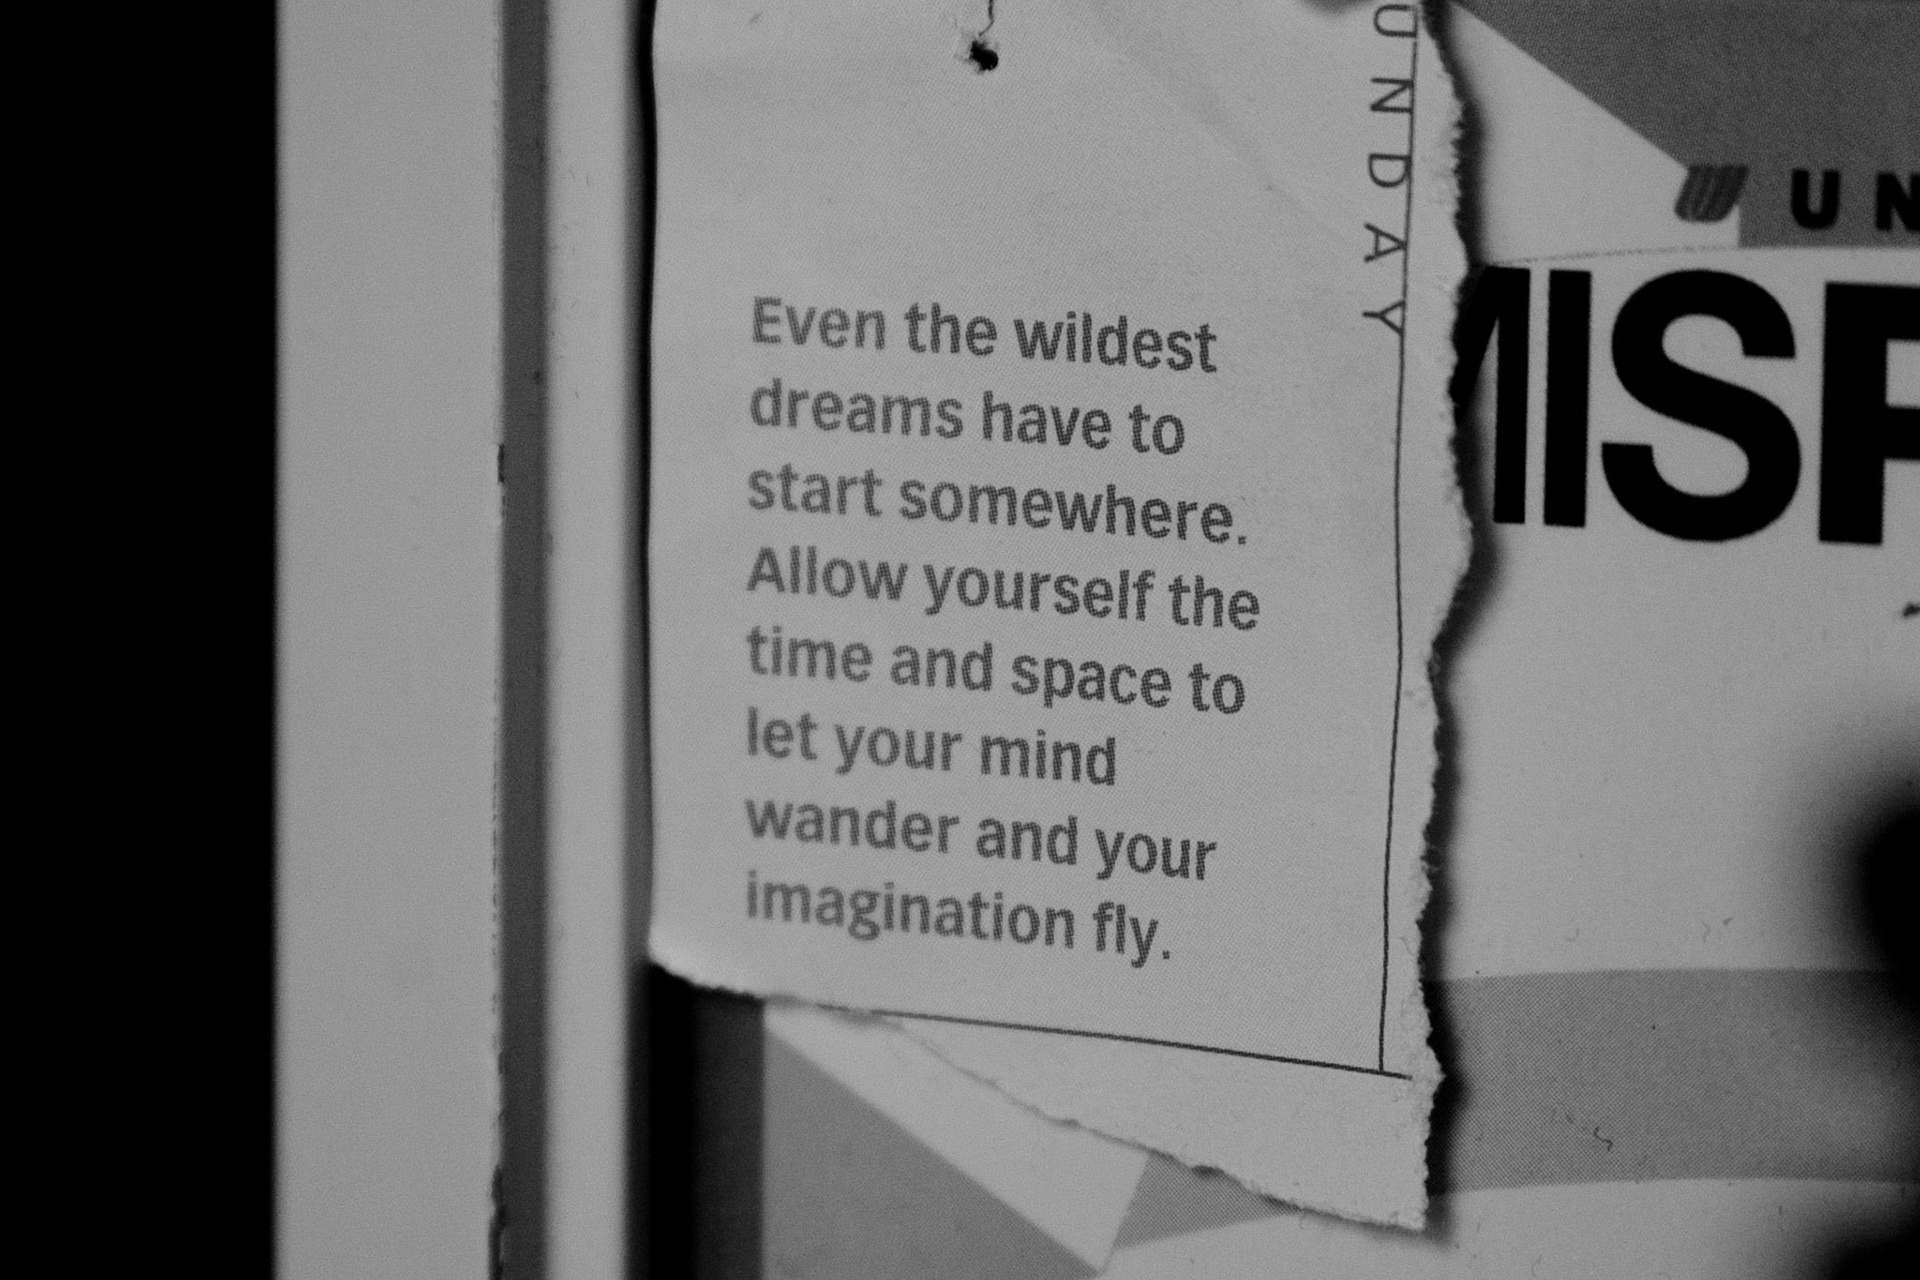 UNDAY
Even the wildest
dreams have to
start somewhere.
Allow yourself the
time and space to
let your mind
wander and your
imagination fly.
UN
MISP